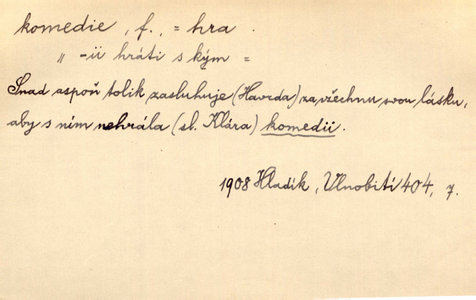 komedie, f., = hra.
„ -ii hráti s kým =
Snad aspoň tolik zasluhuje (Havrda) za všechnu svou lásku,
aby s ním nehrála (sl. Klára) komedii.
1908 Hladík, Vlnobití 404, 7.